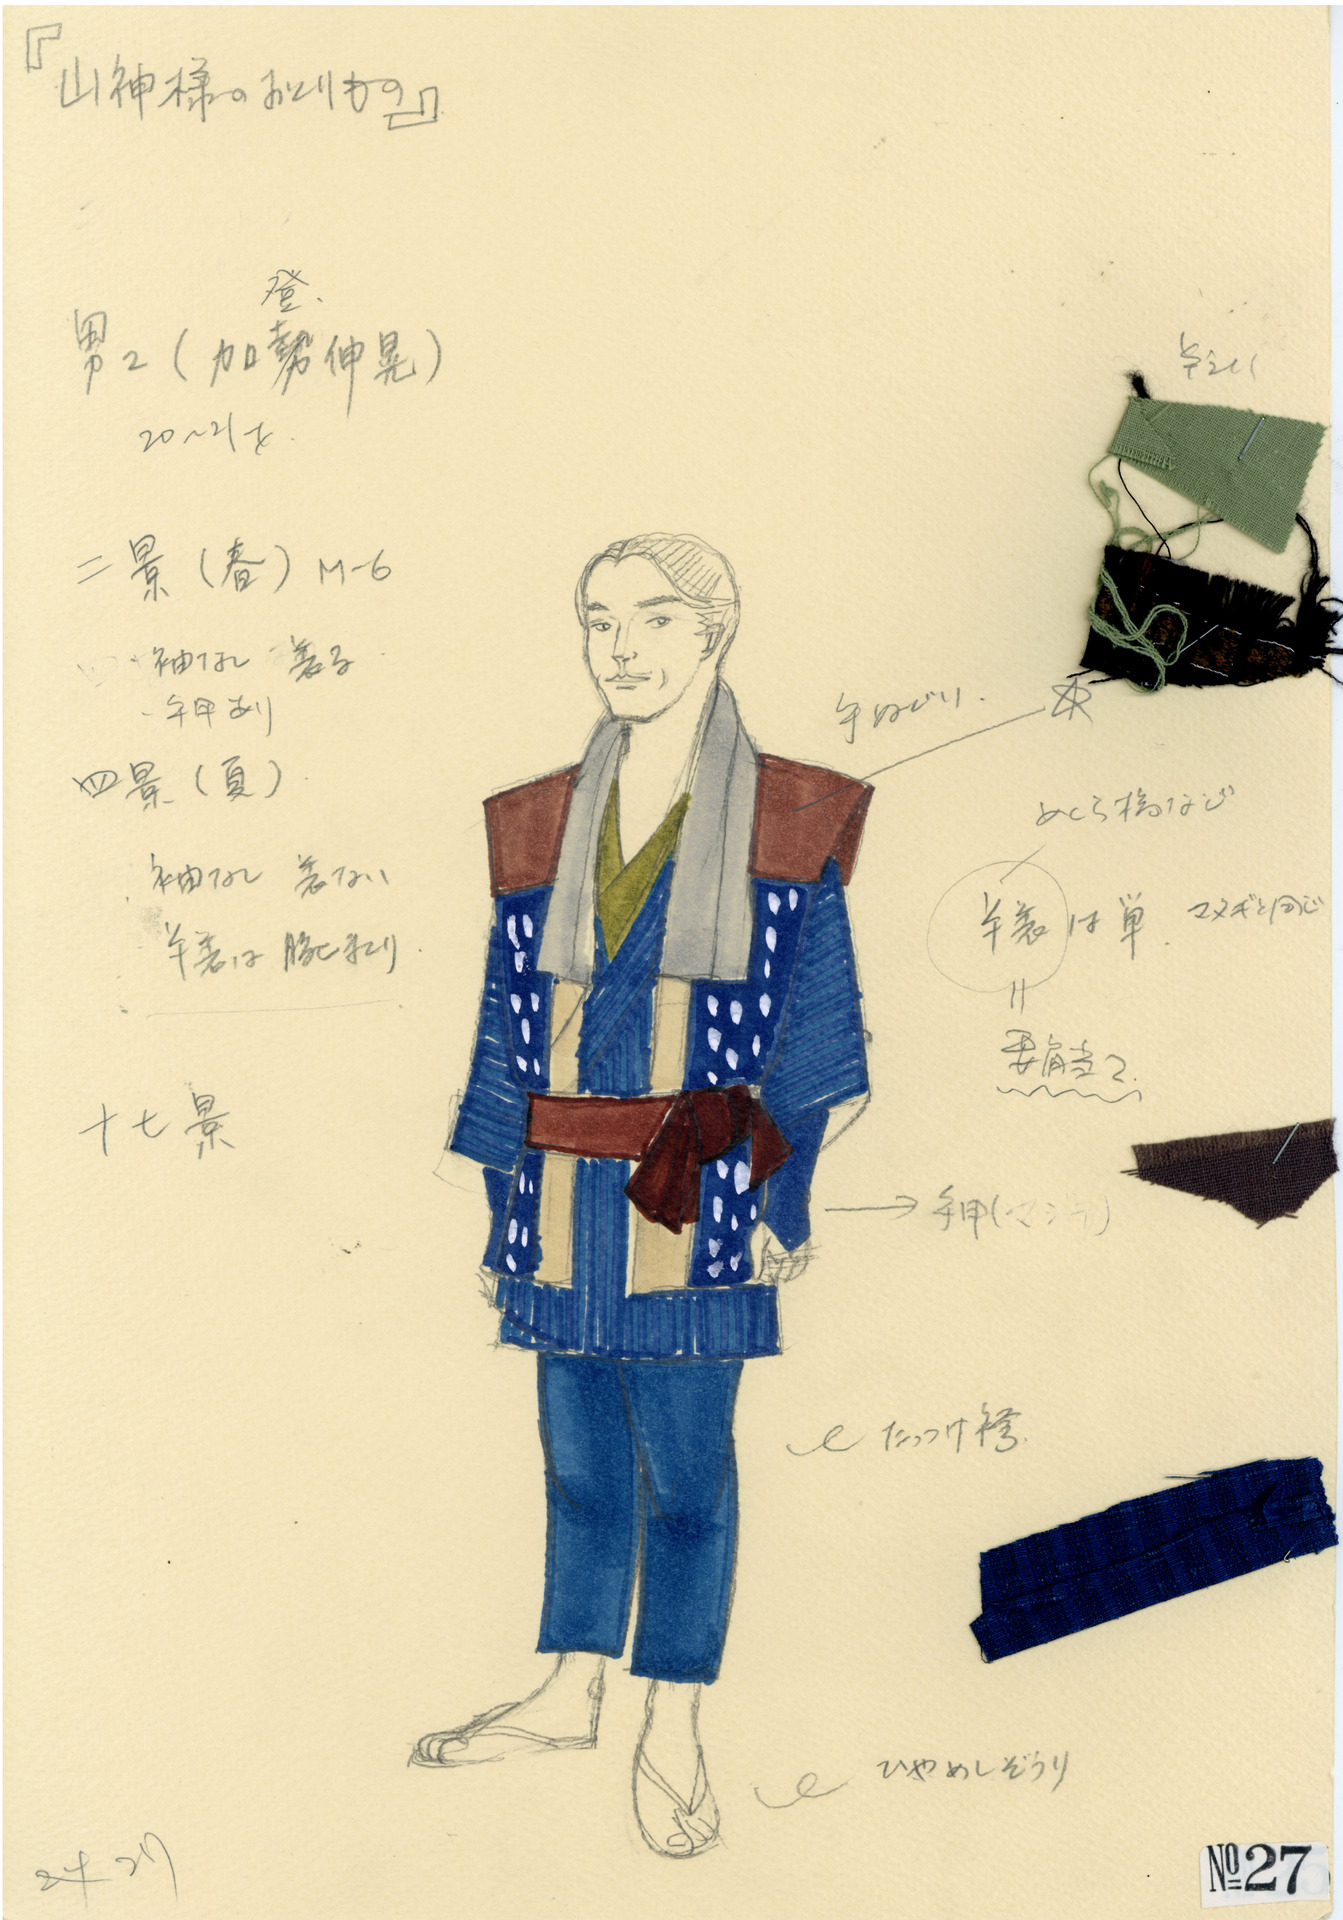 『山神様のおくりもの』
登
男2(加勢伸晃)
20〜21才
二景(春) M-6
袖なし 着る
手甲あり
四景(夏)
袖なし 着ない
半着は
十七景
半えり
手ぬぐい
めくら縞など
半着は単
=
要肩当て
→ 手甲(マジキ)
たっつけ袴
ひやめしぞうり
No 27